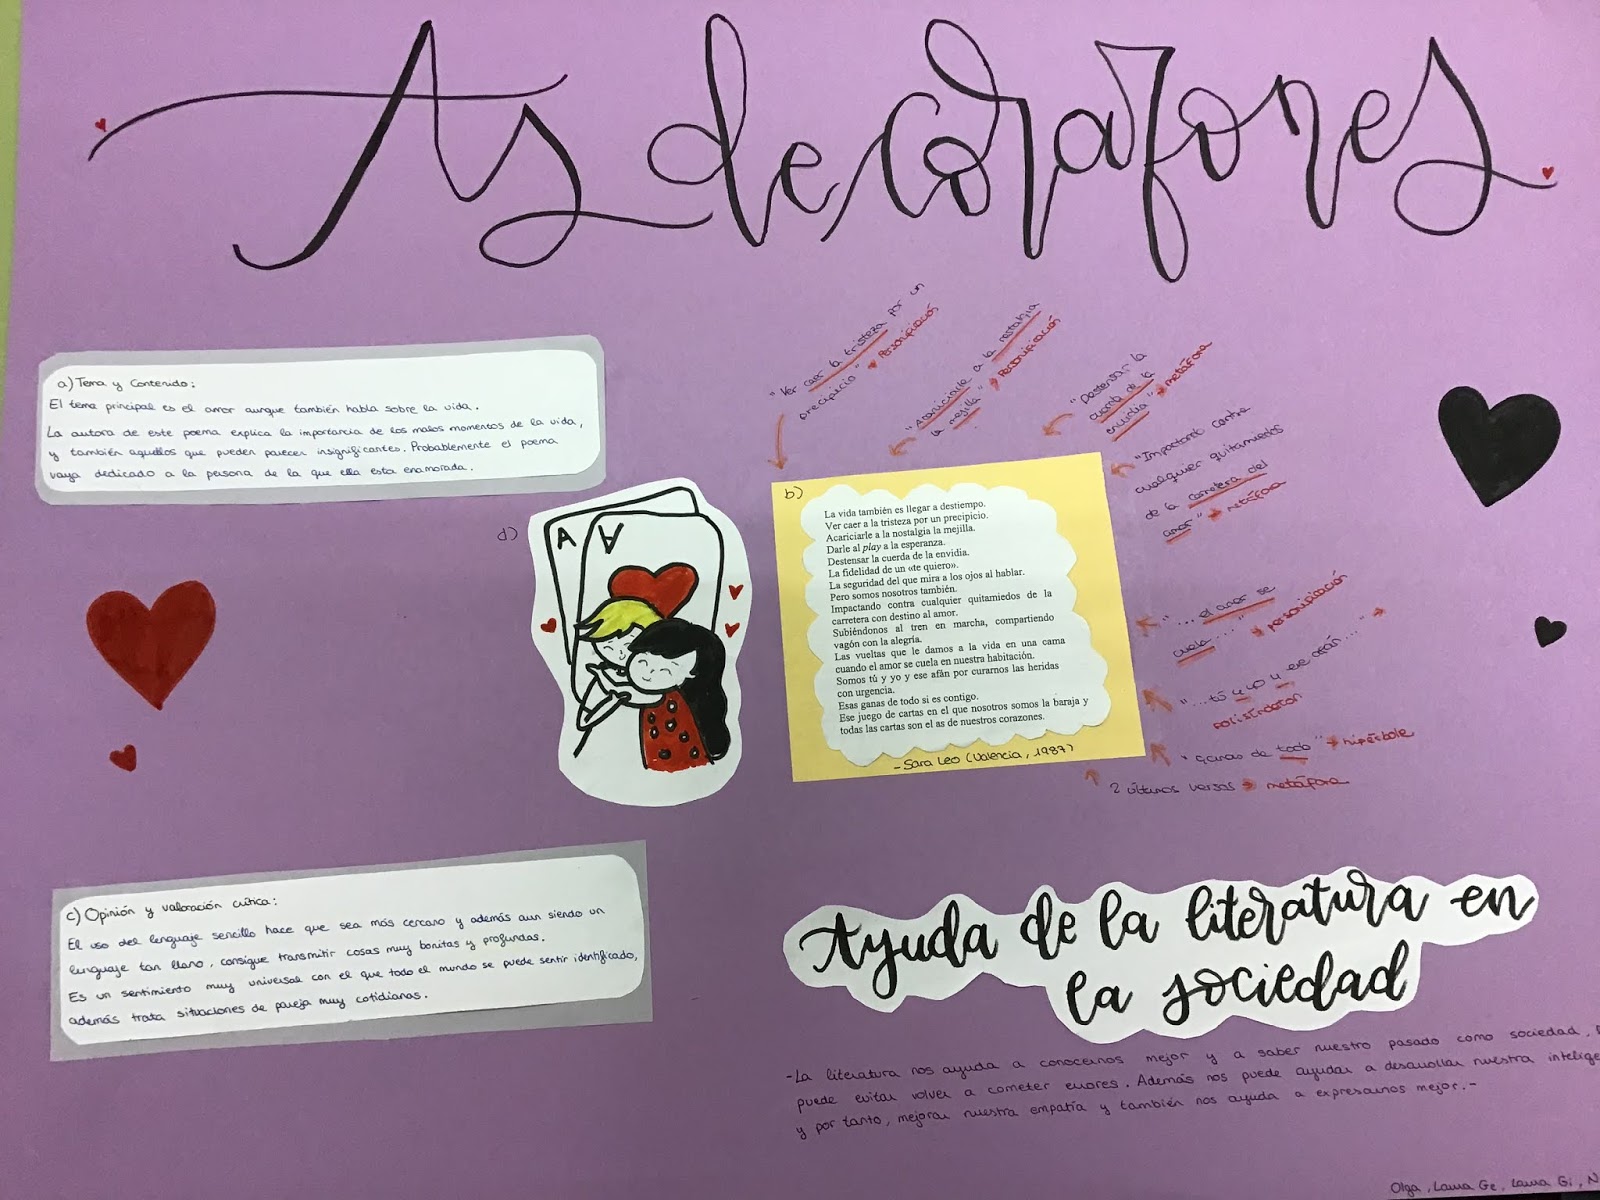 As de corazones
a) Tema y contenido:
El tema principal es el amor aunque también habla sobre la vida.
La autora de este poema explica la importancia de los malos momentos de la vida,
y también aquellos que pueden parecer insignificantes. Probablemente el poema
vaya dedicado a la persona de la que ella esta enamorada.
"Ver caer la tristeza por un
precipicio" → Personificación
"Acariciarle a la nostalgia
la mejilla" → Personificación
"Destensar la
cuerda de la
envidia" → metáfora
"Impactand contra
cualquier quitamiedos
de la carretera del
amor" → metáfora
"... el amor se
cuela ..." → personificación
"...tú y yo y ese afán..." →
polisíndeton
"ganas de todo" → hipérbole
2 últimos versos → metáfora
b)
La vida también es llegar a destiempo.
Ver caer a la tristeza por un precipicio.
Acariciarle a la nostalgia la mejilla.
Darle al play a la esperanza.
Destensar la cuerda de la envidia.
La fidelidad de un «te quiero».
La seguridad del que mira a los ojos al hablar.
Pero somos nosotros también.
Impactando contra cualquier quitamiedos de la
carretera con destino al amor.
Subiéndonos al tren en marcha, compartiendo
vagón con la alegría.
Las vueltas que le damos a la vida en una cama
cuando el amor se cuela en nuestra habitación.
Somos tú y yo y ese afán por curarnos las heridas
con urgencia.
Esas ganas de todo si es contigo.
Ese juego de cartas en el que nosotros somos la baraja y
todas las cartas son el as de nuestros corazones.
-Sara Leo (Valencia, 1987)
d)
A
A
c) Opinión y valoración crítica:
El uso del lenguaje sencillo hace que sea más cercano y además aun siendo un
lenguaje tan llano, consigue transmitir cosas muy bonitas y profundas.
Es un sentimiento muy universal con el que todo el mundo se puede sentir identificado,
además trata situaciones de pareja muy cotidianas.
Ayuda de la literatura en
la sociedad
-La literatura nos ayuda a conocernos mejor y a saber nuestro pasado como sociedad,
puede evitar volver a cometer errores. Además nos puede ayudar a desarrollar nuestra intelige
y por tanto, mejorar nuestra empatía y también nos ayuda a expresarnos mejor.-
Olga, Laura Ge, Laura Gi, N